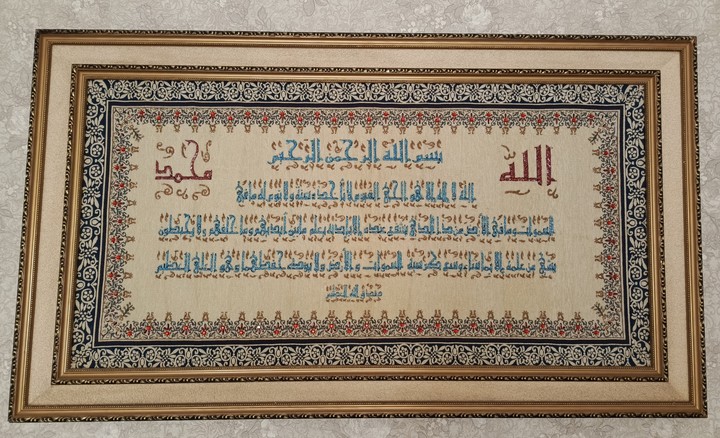 الله
محمد
بسم الله الرحمن الرحيم
الله لا إله إلا هو الحي القيوم لا تأخذه سنة ولا نوم له ما في
السموات وما في الأرض من ذا الذي يشفع عنده إلا بإذنه يعلم ما بين أيديهم وما خلفهم ولا يحيطون
بشيء من علمه إلا بما شاء وسع كرسيه السموات والأرض ولا يؤده حفظهما وهو العلي العظيم
صدق الله العظيم